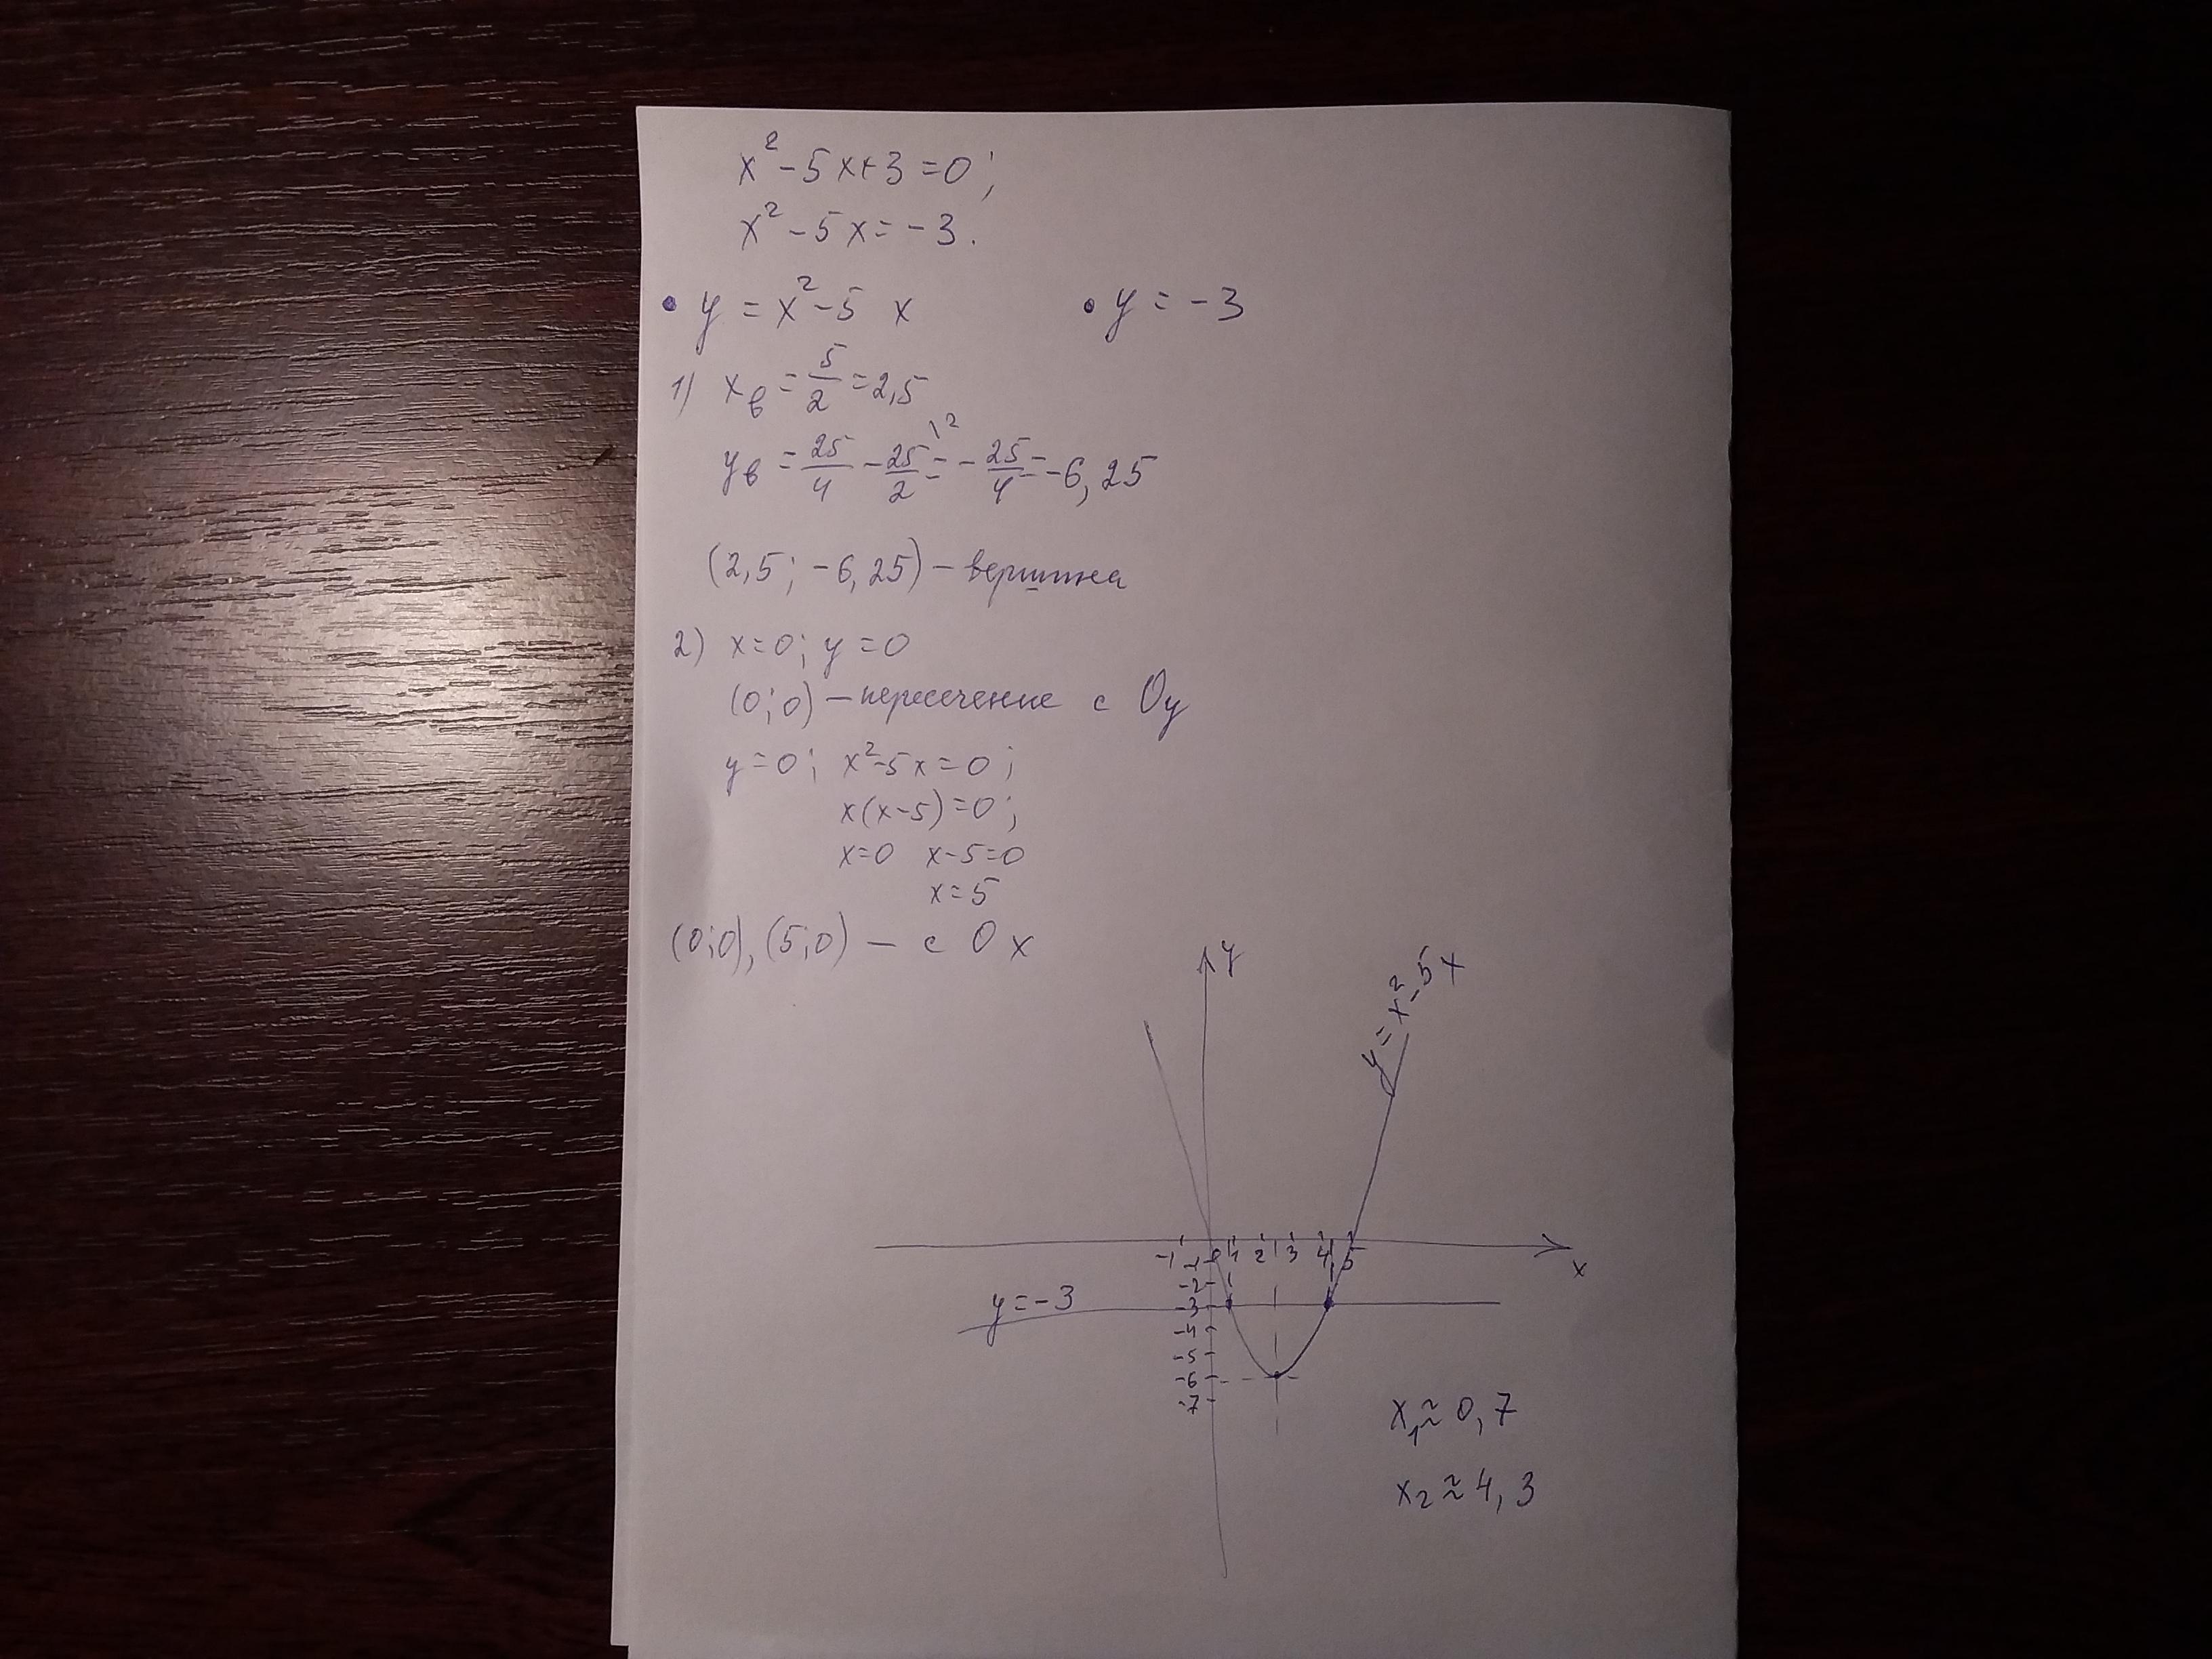 x² - 5x + 3 = 0;
x² - 5x = -3.
• y = x² - 5 x
• y = -3
1) xв = 5/2 = 2,5
yв = 25/4 - 25/2 \² = - 25/4 = -6,25
(2,5; -6,25) – вершина
2) x=0; y=0
(0;0) – пересечение с Oy
y=0; x²-5x=0;
x(x-5)=0;
x=0 x-5=0
x=5
(0;0), (5;0) — с Ox
y
y = x² - 5x
-1 0 1 2 3 4 5
x
-1
-2
y = -3
-3
-4
-5
-6
-7
x₁ ≈ 0,7
x₂ ≈ 4,3